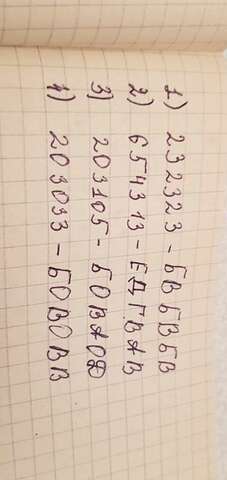 1) 232323 - БВБВБВ
2) 654313 - ЕДГВАВ
3) 203105 - БОВАОД
4) 203033 - БОВОВВ